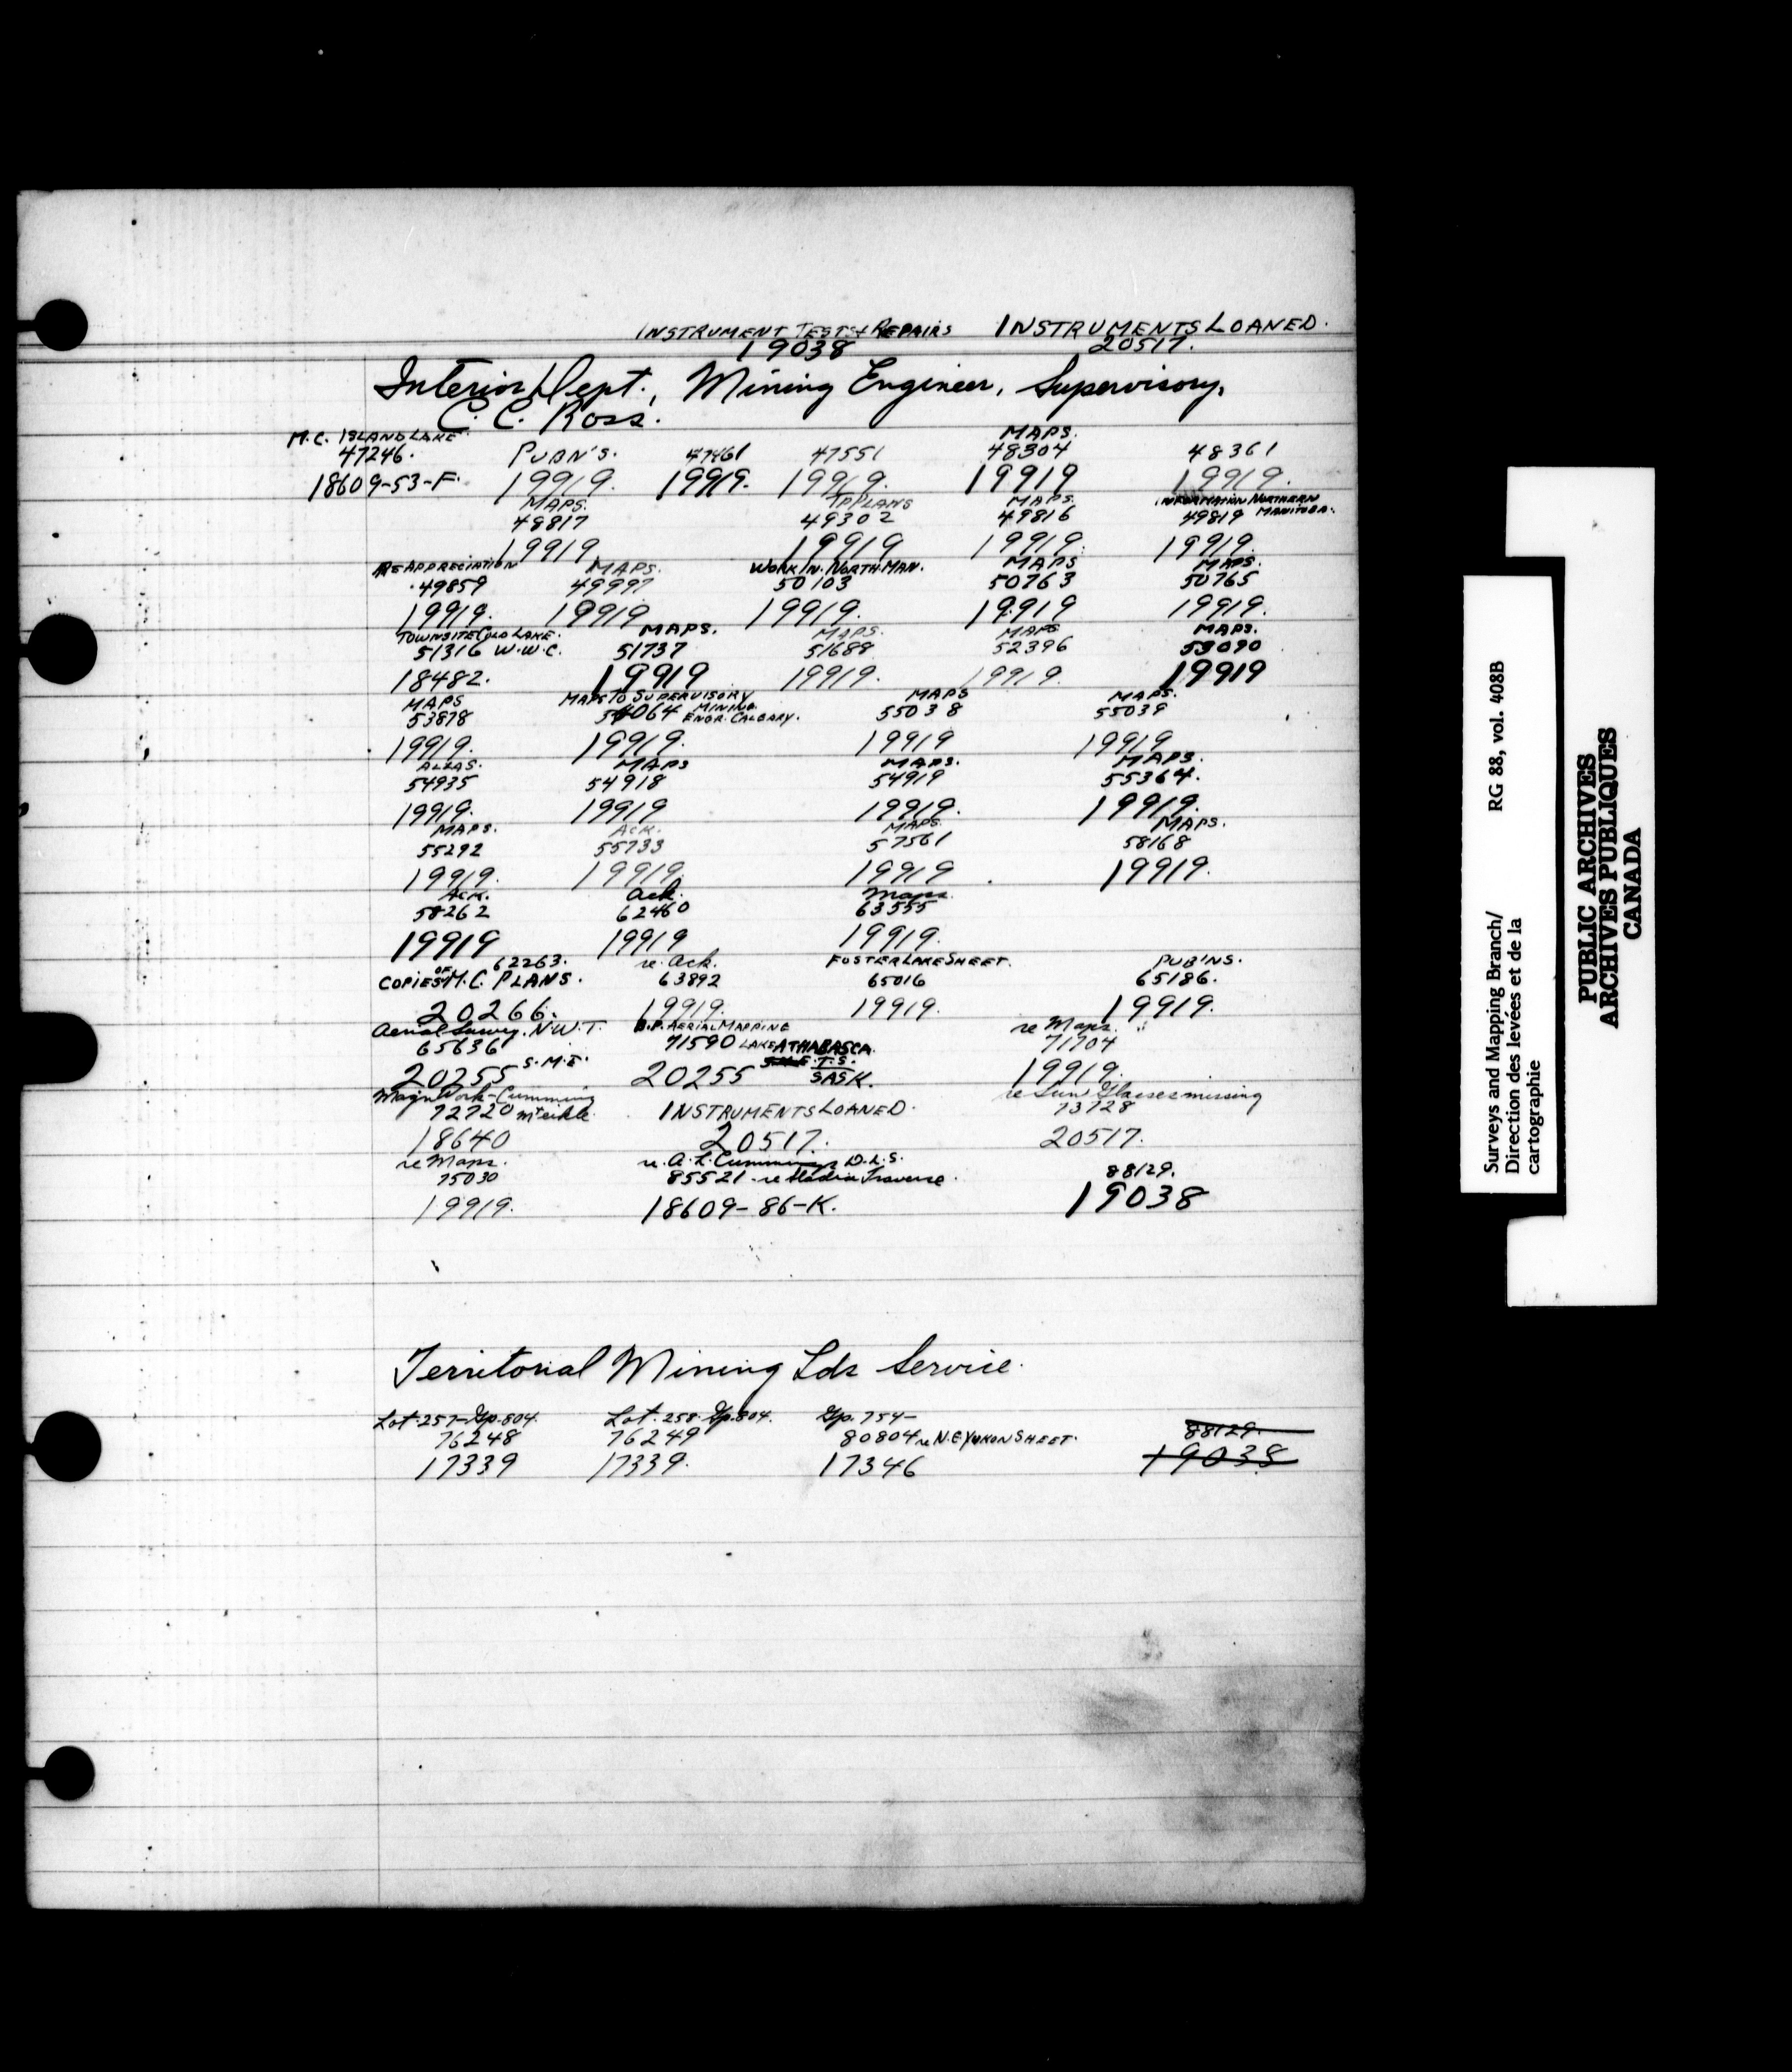 INSTRUMENT TESTS & REPAIRS INSTRUMENTS LOANED.
19038 20517.
Interior Dept., Mining Engineer, Supervisory,
C. C. Ross.
M.C. ISLAND LAKE. MAPS.
47246. PUBN'S. 47461 47551 48304 48361
18609-53-F. 19919. 19919. 19919. 19919 19919.
MAPS. TP PLANS MAPS. INFORMATION NORTHERN
48817 49302 49816 49819 MANITOBA.
19919 19919 19919. 19919.
RE APPRECIATION MAPS. WORK IN. NORTH. MAN. MAPS MAPS.
49859 49997 50103 50763 50765
19919. 19919 19919. 19919 19919.
TOWNSITE COLD LAKE. MAPS. MAPS. MAPS MAPS.
51316 W.W.C. 51737 51688 52396 53090
18482. 19919 19919. 19919. 19919
MAPS MAPS TO SUPERVISORY MAPS MAPS.
53878 54064 MINING ENGR. CALGARY. 55038 55039
19919. 19919. 19919 19919
ATLAS. MAPS MAPS. MAPS.
54935 54918 54919 55364.
19919. 19919 19919. 19919.
MAPS. ACK. MAPS. MAPS.
55292 55733 57561 58168
19919. 19919. 19919 19919.
ACK. Ack. Maps.
58262 62460 63555
19919 19919 19919.
62263. re. Ack. FOSTER LAKE SHEET. PUB'NS.
COPIES OF M.C. PLANS. 63892 65016 65186.
20266. 19919. 19919. 19919.
Aerial Survey. N.W.T. B.P. AERIAL MAPPING re Maps.
65636 71590 LAKE ATHABASCA. 71704
20255 S.M.E. 20255 T.S. SASK. 19919.
Magn Work-Cumming re Sun Glasses missing
72720 Meikle. INSTRUMENTS LOANED. 73728
18640 20517. 20517.
re Maps. re. A. L. Cumming D.L.S. 88129.
75030 85521 - re Stadia Traverse.
19919. 18609-86-K. 19038
Territorial Mining Lds Service.
Lot. 257-Gp. 804. Lot. 258. Gp. 804. Gp. 754-
76248 76249 80804 re N.E YUKON SHEET. 88129.
17339 17339. 17346 19038
RG 88, vol. 408B
Surveys and Mapping Branch/
Direction des levées et de la
cartographie
PUBLIC ARCHIVES
ARCHIVES PUBLIQUES
CANADA